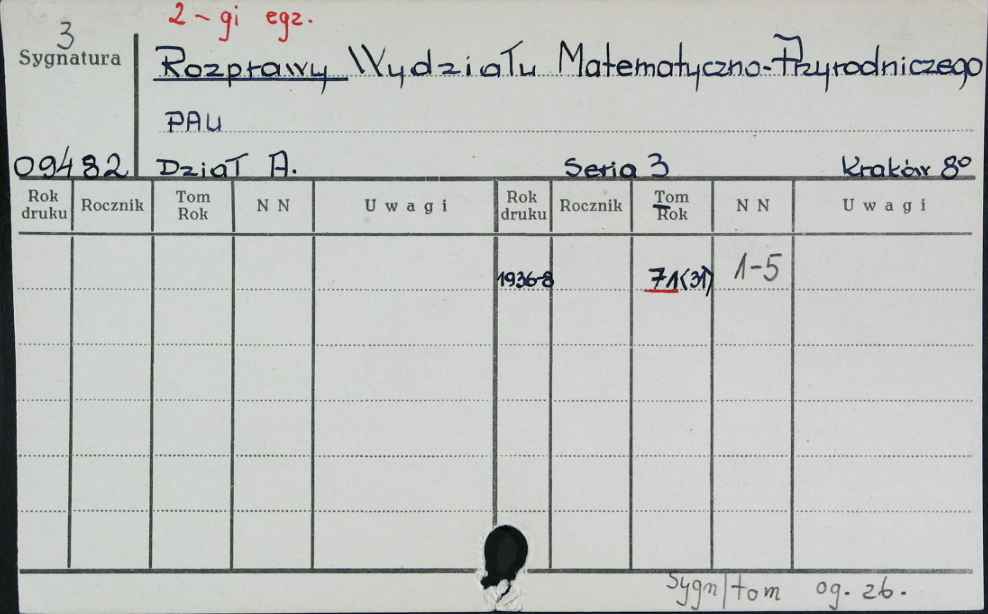 2-gi egz.
3
Sygnatura
Rozprawy Wydziału Matematyczno-Przyrodniczego
PAU
09482 Dział A. Seria 3 Kraków 8°
Rok druku Rocznik Tom Rok N N Uwagi Rok druku Rocznik Tom Rok N N Uwagi
1936-8 71(31) 1-5
Sygn/tom og. zb.